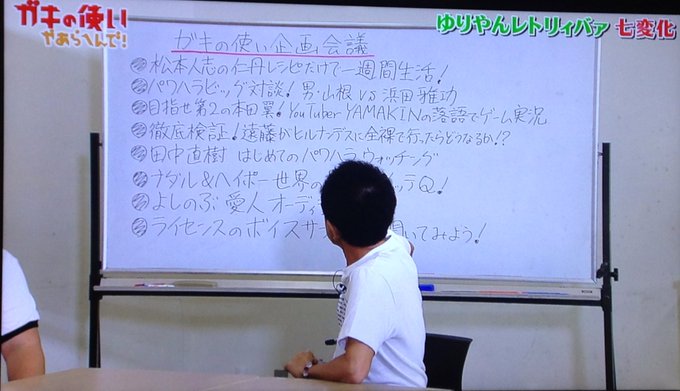 ガキの使い
やあらへんで!
ゆりやんレトリィバァ 七変化
ガキの使い企画会議
松本人志の仁丹レシピだけで一週間生活!
パワハラビッグ対談!男・山根 VS 浜田雅功
目指せ第2の本田翼!YouTuber YAMAKINの落語でゲーム実況
徹底検証!遠藤がヒルナンデスに全裸で行ったらどうなるか!?
田中直樹 はじめてのパワハラウォッチング
ナダル&ヘイポー世界の ッテQ!
よしのぶ愛人オーディ
ライセンスのボイスサ 聞いてみよう!